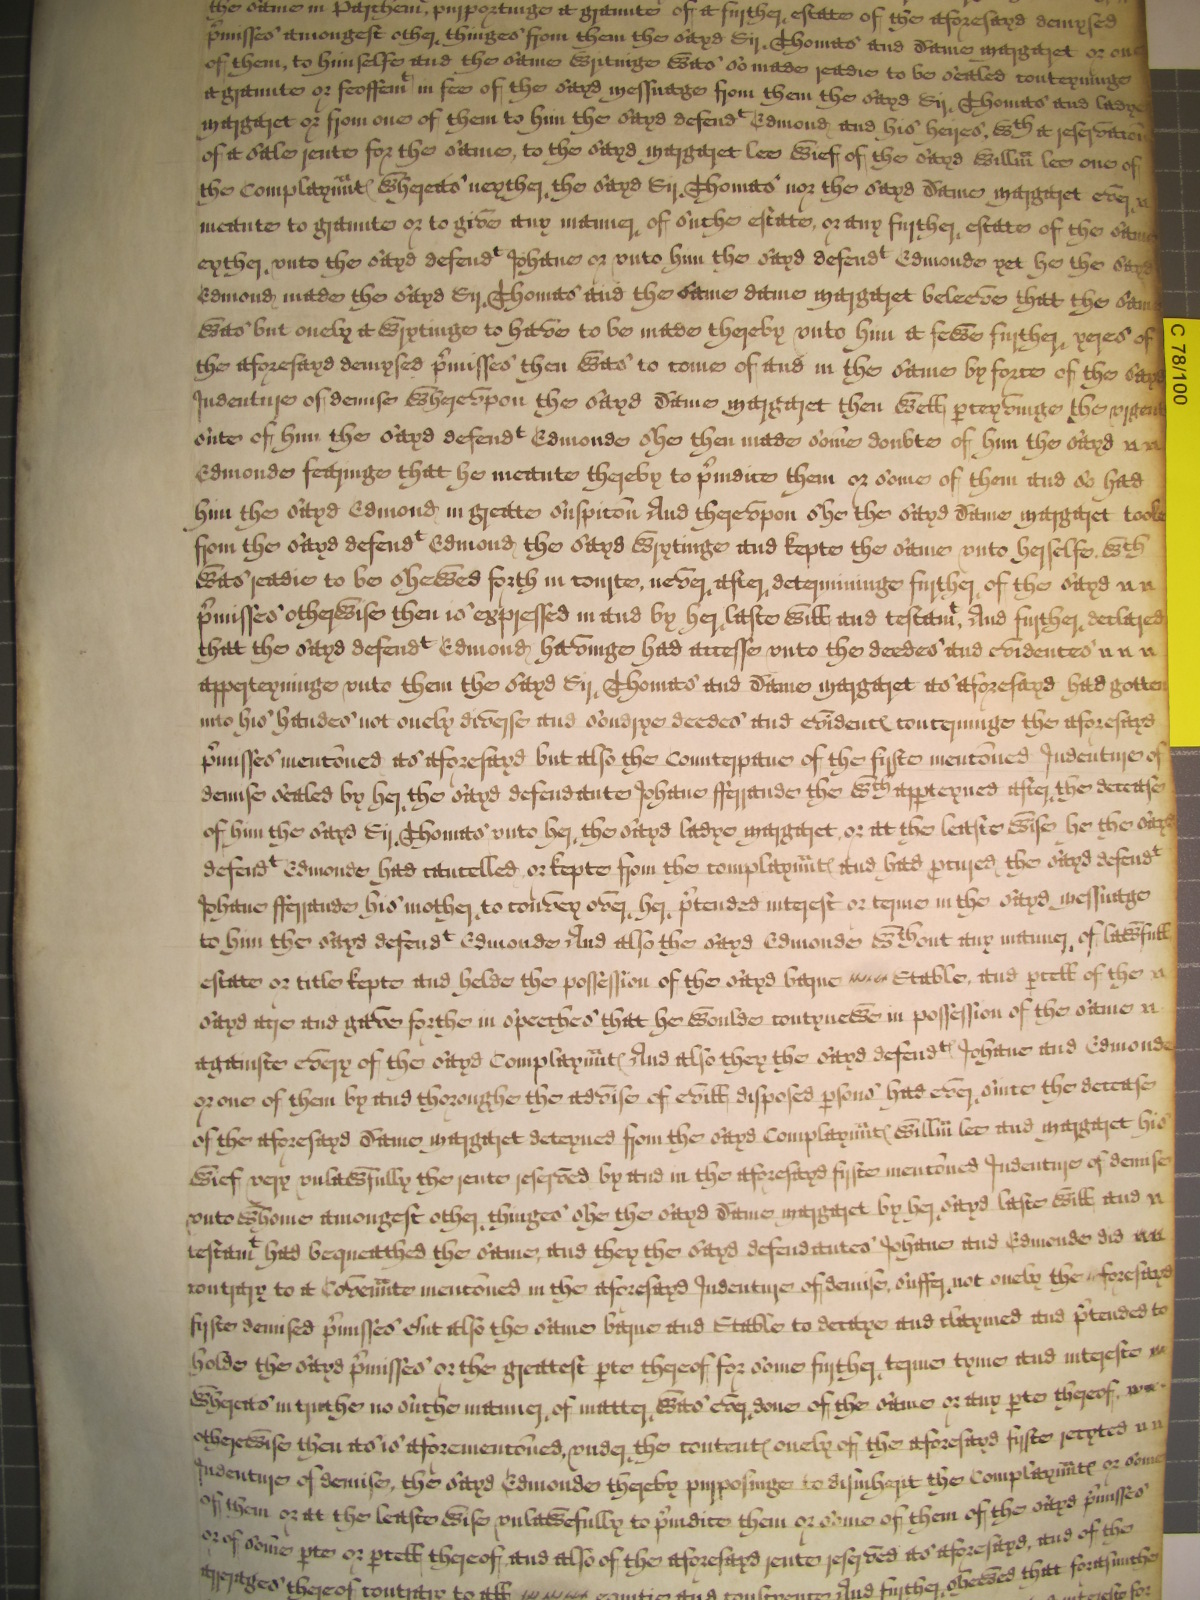 the same in Parchem, purportinge a graunte of a further estate of the aforesayd demysed
p̄misses amongest other thinges from them the sayd Sir Thomas and Dame margaret or one
of them, to himselfe and the same Wrytinge Was so made readie to be sealed conteyninge
a graunte or feoffemt in fee of the sayd messuage from them the sayd Sir Thomas and ladye
margaret or from one of them to him the sayd defendt Edmond and his heires, Wth a reservacōn
of a sale rente for the same, to the sayd margaret lee Wief of the sayd Willm̄ lee one of
the Complaynn̄tes Whereas neyther the sayd Sir Thomas nor the sayd Dame margaret ever
meante to graunte or to give any manner of suche estate, or any further estate of the same
eyther unto the sayd defendt Johane or unto him the sayd defendt Edmonde yet he the sayd
Edmond made the sayd Sir Thomas and the same dame margaret beleeve that the same
Was but onely a Wrytinge to have to be made thereby unto him a fewe further yeres of
the aforesayd demysed p̄misses then Was to come of and in the same by force of the sayd
Indenture of demise Whereupon the sayd Dame margaret then Well pceyvinge the urgent
suite of him the sayd defendt Edmonde she then made some doubte of him the sayd
Edmonde fearinge that he meante thereby to p̄iudice them or some of them and so had
him the sayd Edmond in greate suspicōn And thereupon she the sayd Dame margaret tooke
from the sayd defendt Edmond the sayd Wrytinge and kepte the same unto herselfe. Wch
Was readie to be shewed forth in courte, never after determininge further of the sayd
p̄misses otherwise then is expressed in and by her laste Will and testamt, And further declared
that the sayd defendt Edmond havinge had accesse unto the deedes and evidences
apperteyninge unto them the sayd Sir Thomas and Dame margaret as aforesayd had gotten
into his handes not onely diverse and sondrye deedes and evidences concerninge the aforesayd
p̄misses mentōned as aforesayd but also the Counterpane of the firste mentōned Indenture of
demise sealed by her the sayd defendante Johane fferrande the Wch apperteyned after the decease
of him the sayd Sir Thomas unto her the sayd ladye margaret, or at the leaste Wise he the sayd
defendt Edmonde had cancelled or kepte from the complaynn̄tes and had pcured the sayd defendt
Johane fferrande his mother to convey over her p̄tended interest or terme in the sayd messuage
to him the sayd defendt Edmonde And also the sayd Edmonde Wthout any manner of lawfull
estate or title kepte and helde the possession of the sayd barne Stable, and pcell of the
sayd and gave forthe in speeches that he Woulde contynewe in possession of the same
againste every of the sayd Complaynn̄tes And also they the sayd defendtes Johane and Edmonde
or one of them by and thoroughe the advise of evill disposed psons had ever since the decease
of the aforesayd Dame margaret deteyned from the sayd Complaynn̄tes Willm̄ lee and margaret his
Wief very unlawfully the rente reserved by and in the aforesayd firste mentōned Indenture of demise
unto Whome amongest other thinges she the sayd Dame margaret by her sayd laste Will and
testamt had bequeathed the same, and they the sayd defendantes Johane and Edmonde did
contrary to a Coven̄nte mentōned in the aforesayd Indenture of demise, suffer not onely the aforesayd
firste demised p̄misses But also the same barne and Stable to decaye and claymed and p̄tended to
holde the sayd p̄misses or the greatest pte thereof for some further terme tyme and intereste
Whereas in truthe no suche manner of matter Was ever done of the same or any pte thereof,
otherwise then as is aforementōned, under the contentes onely of the aforesayd firste recyted
Indenture of demise, the sayd Edmonde thereby purposinge to disinherit the Complaynn̄tes or some
of them or at the leaste Wise unlawefully to p̄iudice them or some of them of the sayd p̄misses
or of some pte or pcell thereof, and also of the aforesayd rente reserved as aforesayd, and of the
arrerages thereof contrary to all equitie and conscience And further shewed that forasmuche
C 78/100